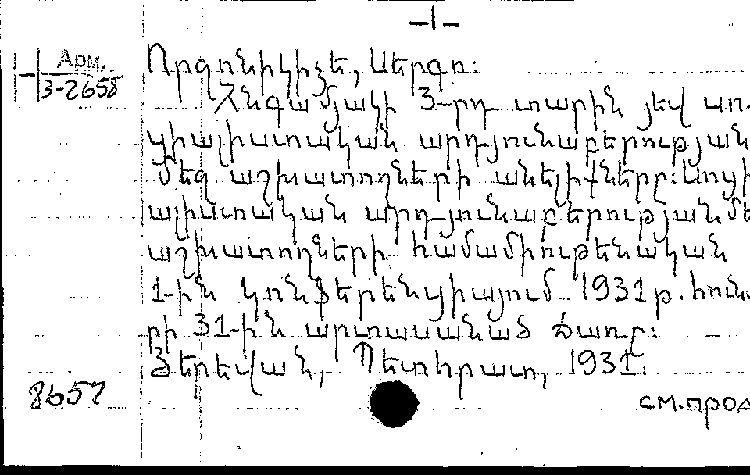 -1-
Арм.
3-2658
Որջոնիկիձե, Սերգո:
Հնգամյակի 3-րդ տարին յեվ սո-
ցիալիստական արդյունաբերության
մեզ աշխատողների անելիքները: Սոցի
ալիստական արդյունաբերության մե
աշխատողների համամիութենական
1-ին կոնֆերենցիայում 1931թ. հուն
րի 31-ին արտասանած ճառը:
Յերեվան, Պետհրատ, 1931.
8657
см. прод